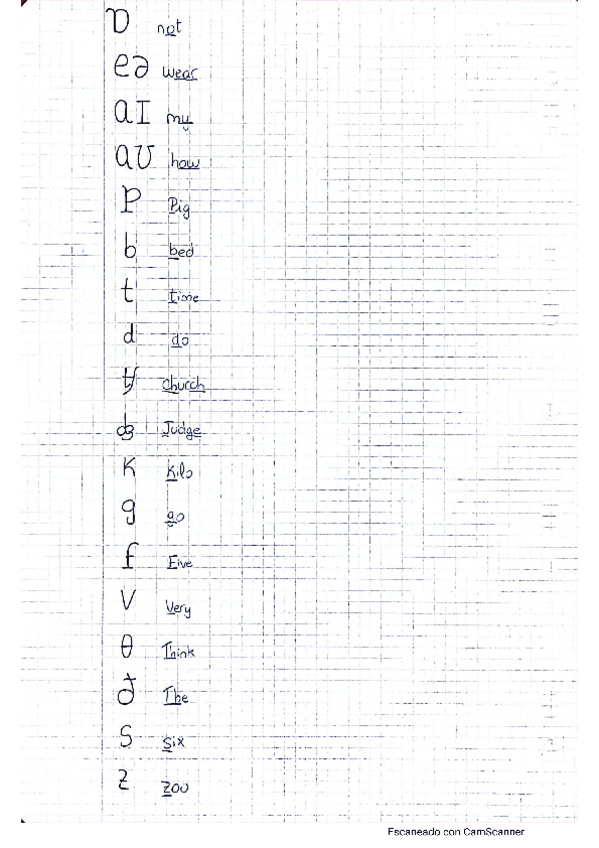 ɒ not
eə wear
aɪ my
aʊ how
p Pig
b bed
t time
d do
tʃ church
dʒ Judge
k kilo
g go
f Five
v Very
θ Think
ð The
s six
z zoo
Escaneado con CamScanner